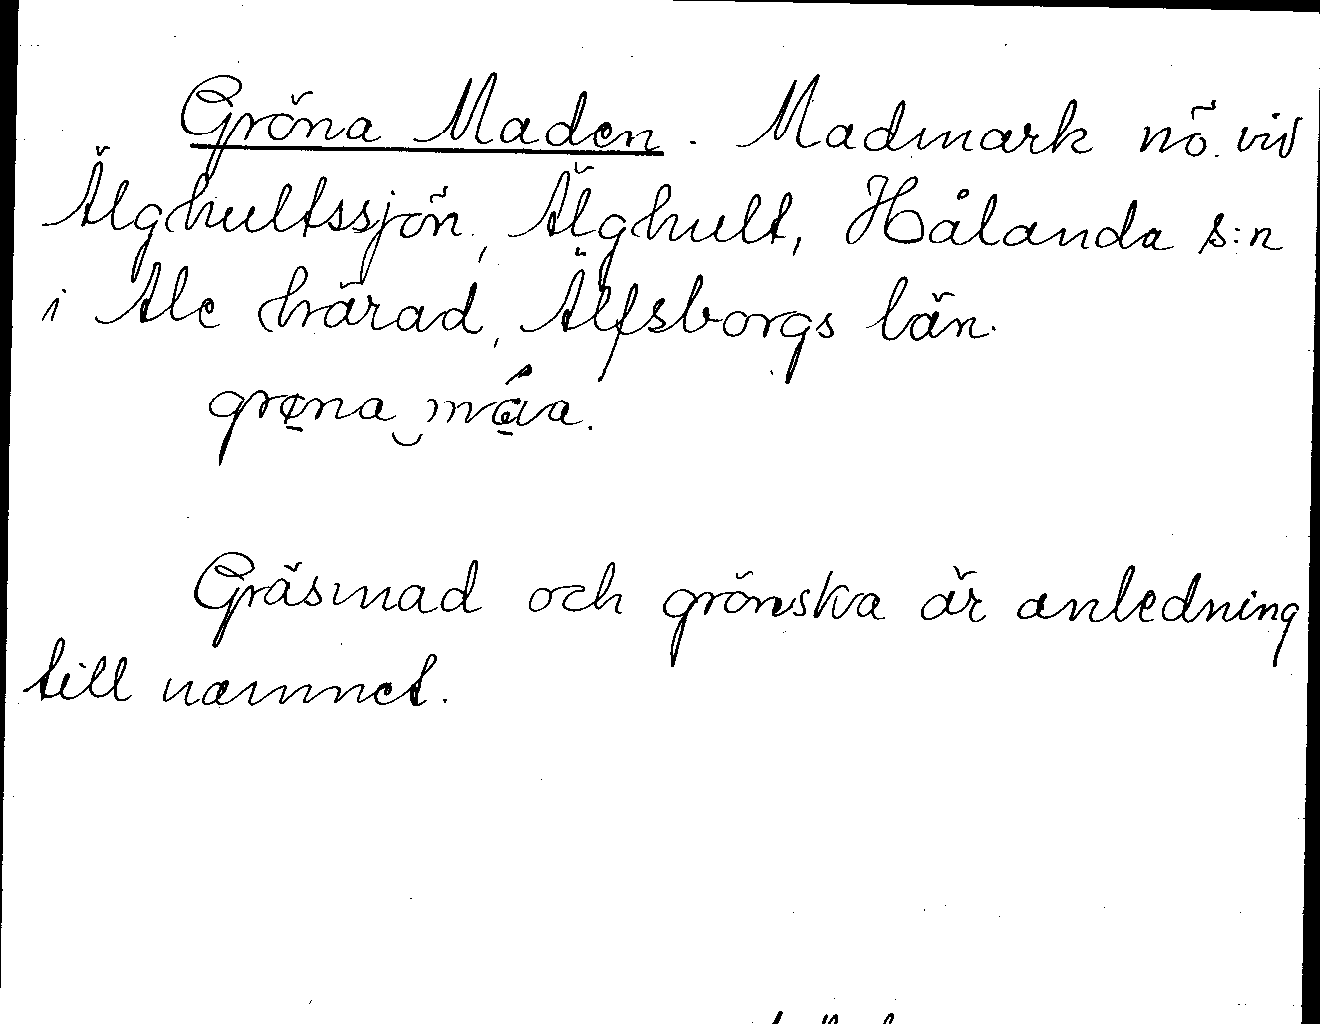 Gröna Maden. Madmark nö. vid
Älghultssjön, Älghult, Hålanda s:n
i Ale härad, Älfsborgs län.
Gräsmad och grönska är anledning
till namnet.